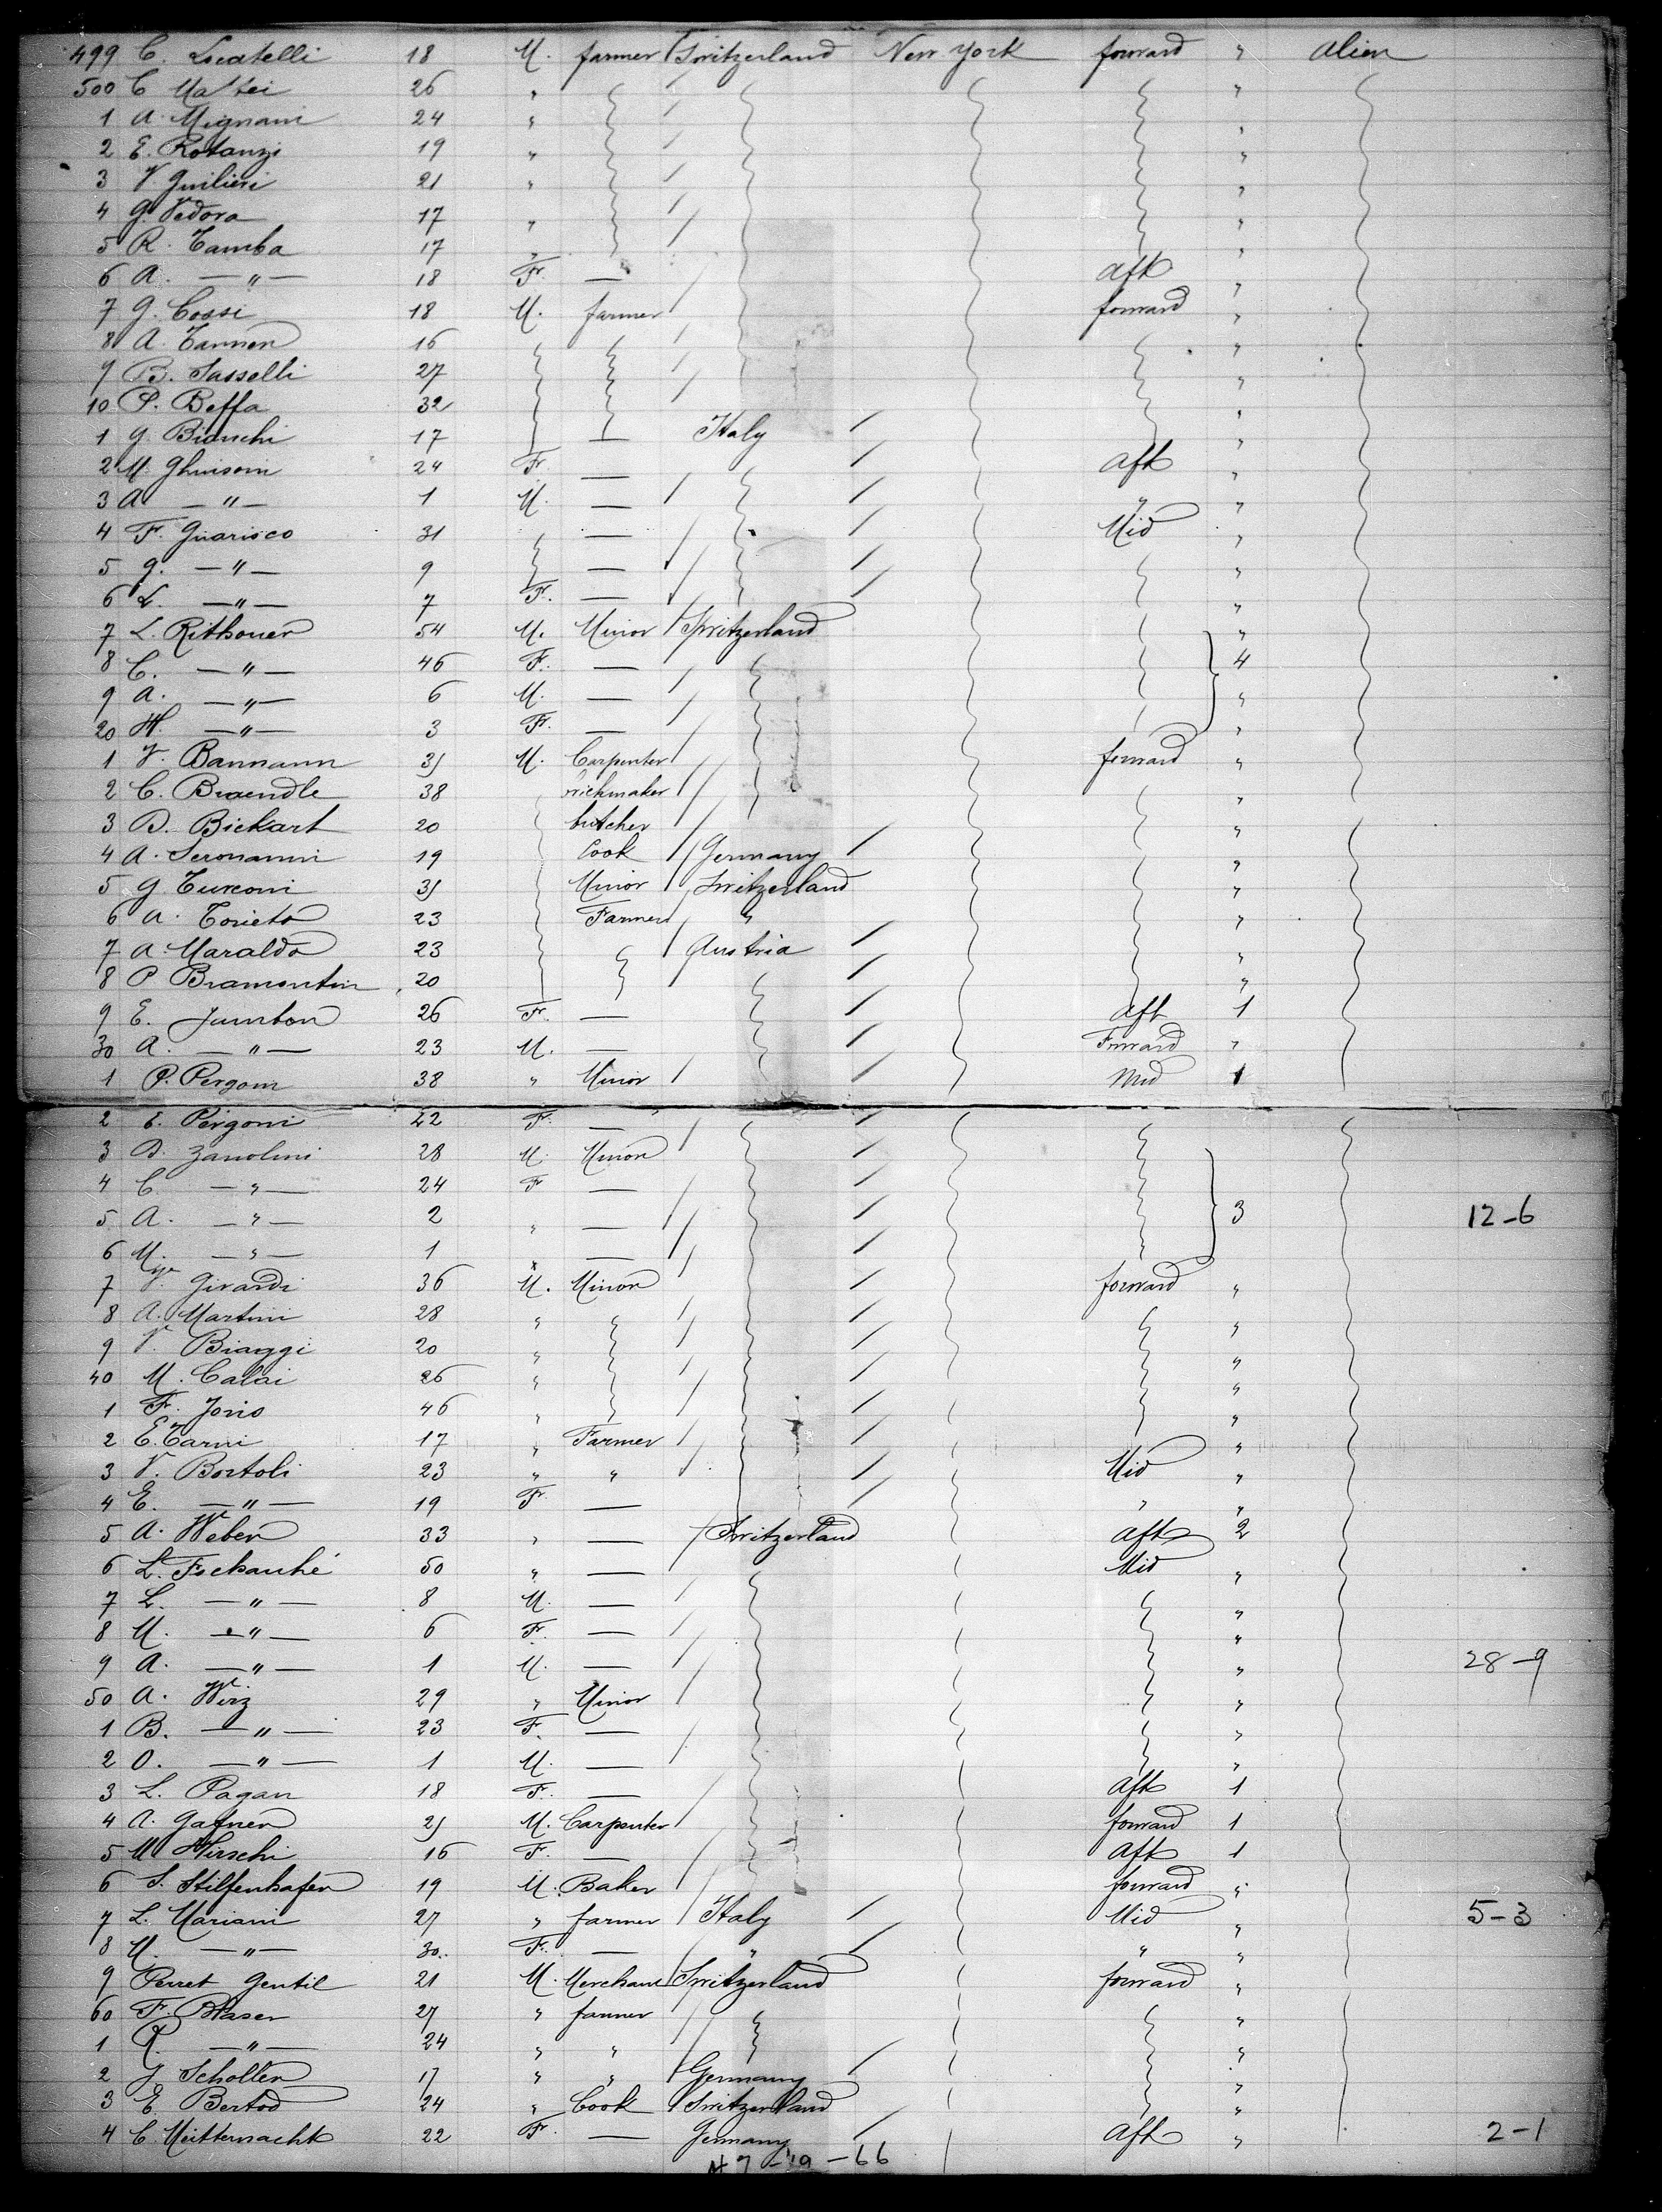 499 C. Locatelli 18 M. farmer Switzerland New York forward " alien
500 C Mattei 26 " "
1 A. Mignani 24 " "
2 E. Rotanzi 19 " "
3 V Guilieri 21 " "
4 G. Vedova 17 " "
5 R. Tamba 17 " "
6 A. —"— 18 F. — aft "
7 G. Cossi 18 M. farmer forward "
8 A. Tanner 16 "
9 B. Sasselli 27 "
10 P. Beffa 32 "
1 G. Bianchi 17 — Italy "
2 M. Ghuisoni 24 F. — aft "
3 A —"— 1 M. — " "
4 F. Guarisco 31 — Mid "
5 G. —"— 9 — "
6 L. —"— 7 F. — "
7 L. Rithouer 54 M. Minor Switzerland "
8 C. —"— 46 F. — 4
9 A. —"— 6 M. — "
20 H. —"— 3 F. — "
1 V. Banmann 35 M. Carpenter forward "
2 C. Braendle 38 rickmaker "
3 D. Bickart 20 butcher "
4 A. Seromanni 19 Cook Germany "
5 G Turconi 35 Minor Switzerland "
6 A. Torieto 23 Farmer " "
7 A. Maraldo 23 Austria "
8 P Bramontin 20 "
9 E. Jumbon 26 F. — aft 1
30 A. —"— 23 M. — Forward "
1 P. Pergom 38 " Minor Mid 1
2 E. Pergoni 22 F. —
3 D. Zanolini 28 M. Minor
4 C. —"— 24 F —
5 A. —"— 2 " — 3 12-6
6 M. —"— 1 " —
7 V Girardi 36 M. Minor forward "
8 A. Martini 28 " "
9 V. Biaggi 20 " "
40 M. Calai 26 " "
1 F. Jorio 46 " "
2 E. Tarni 17 " Farmer "
3 V. Bortoli 23 " " Mid "
4 E. —"— 19 F. — " "
5 A. Weber 33 " — Switzerland aft 2
6 L. Fschauhé 50 " — Mid "
7 L. —"— 8 M. — "
8 M. —"— 6 F. — "
9 A. —"— 1 M. — " 28-9
50 A. Wirz 29 " Minor "
1 B. —"— 23 F. — "
2 O. —"— 1 M. — "
3 L. Pagan 18 F. — aft 1
4 A. Gafner 25 M. Carpenter forward 1
5 M Hirschi 16 F. — Aft 1
6 S. Stilfenhafer 19 M. Baker forward "
7 L. Mariani 27 " farmer Italy Mid " 5-3
8 M. —"— 30. F. — " " "
9 Perret Gentil 21 M. Merchant Switzerland forward "
60 F. Blaser 27 " farmer "
1 R. —"— 24 " " "
2 J Scholler 17 " " Germany "
3 E Bertod 24 " Cook Switzerland "
4 C. Mitternacht 22 F. — Germany Aft " 2-1
47-19-66